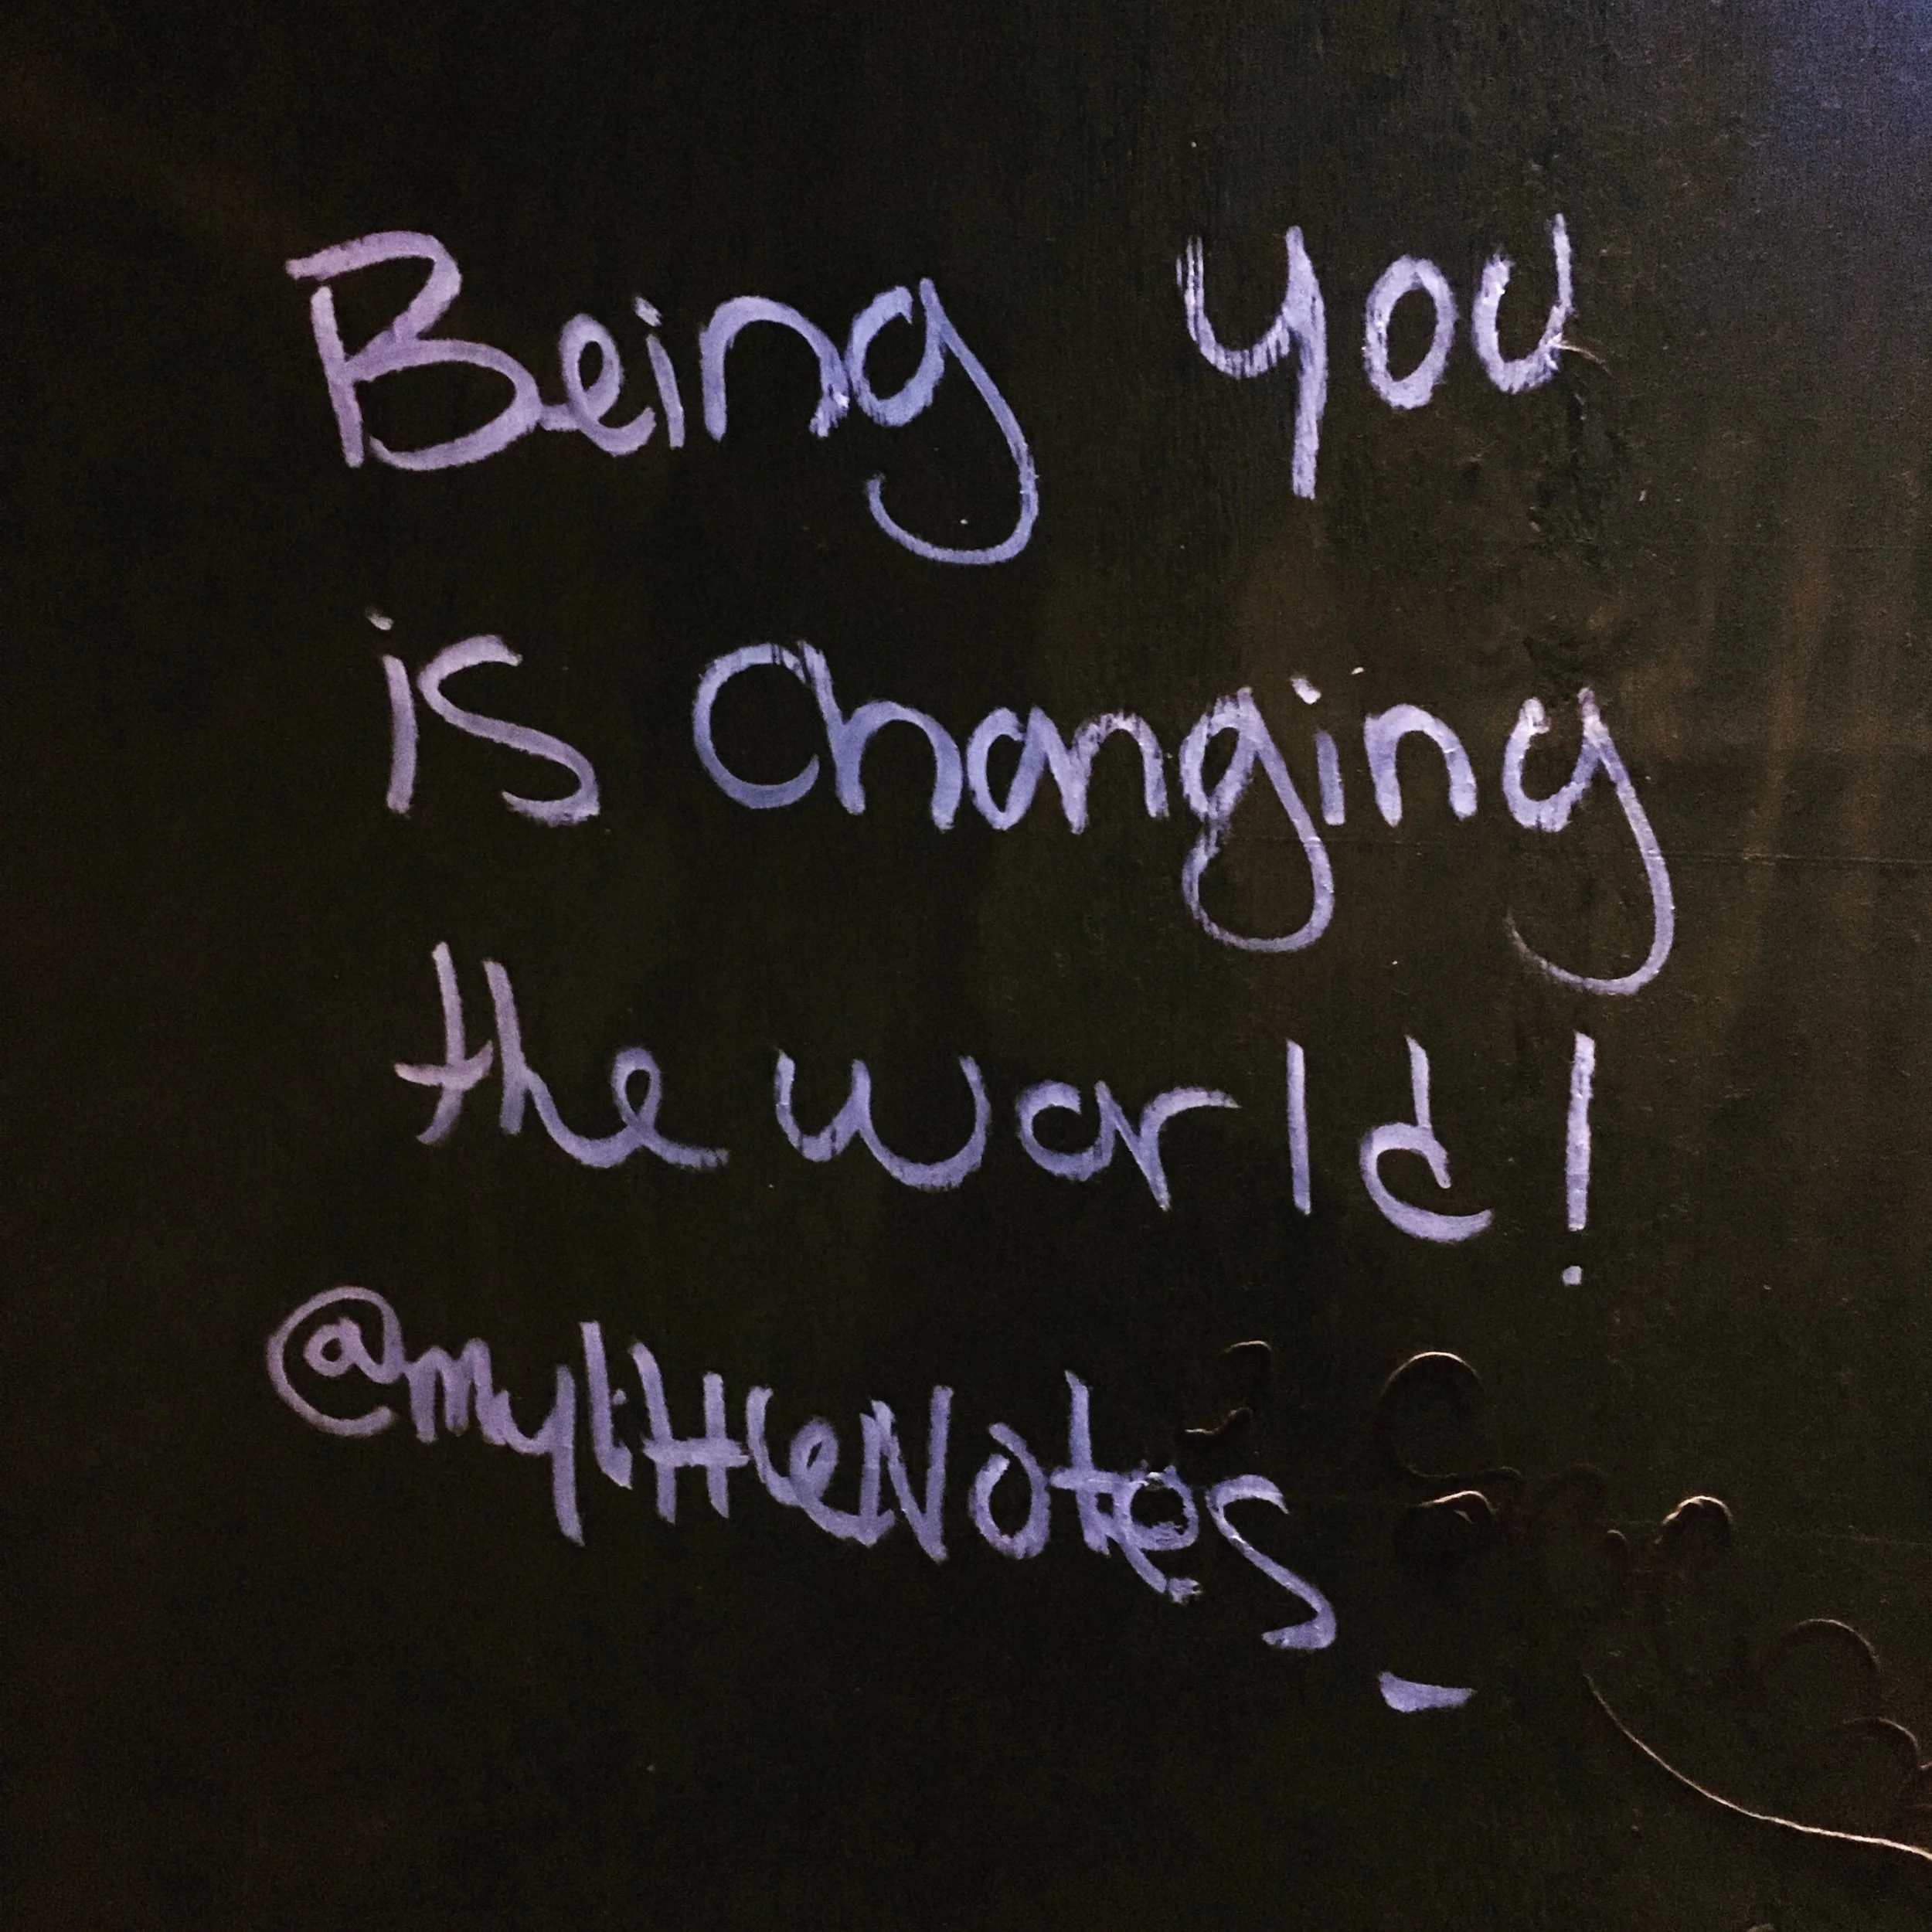 Being you
is changing
the world!
@mylittleNotes_